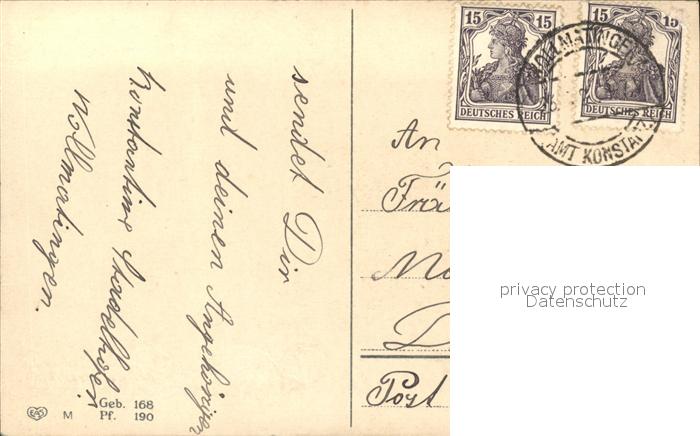 sendet Dir
und deinen Angehörigen
Konstantine Stadelhofer
Wollmatingen.
An
Frä
Ma
D
Post
15 15
DEUTSCHES REICH
15 15
DEUTSCHES REICH
WOLLMATINGEN
AMT KONSTANZ
EAS
M
Geb. 168
Pf. 190
privacy protection
Datenschutz